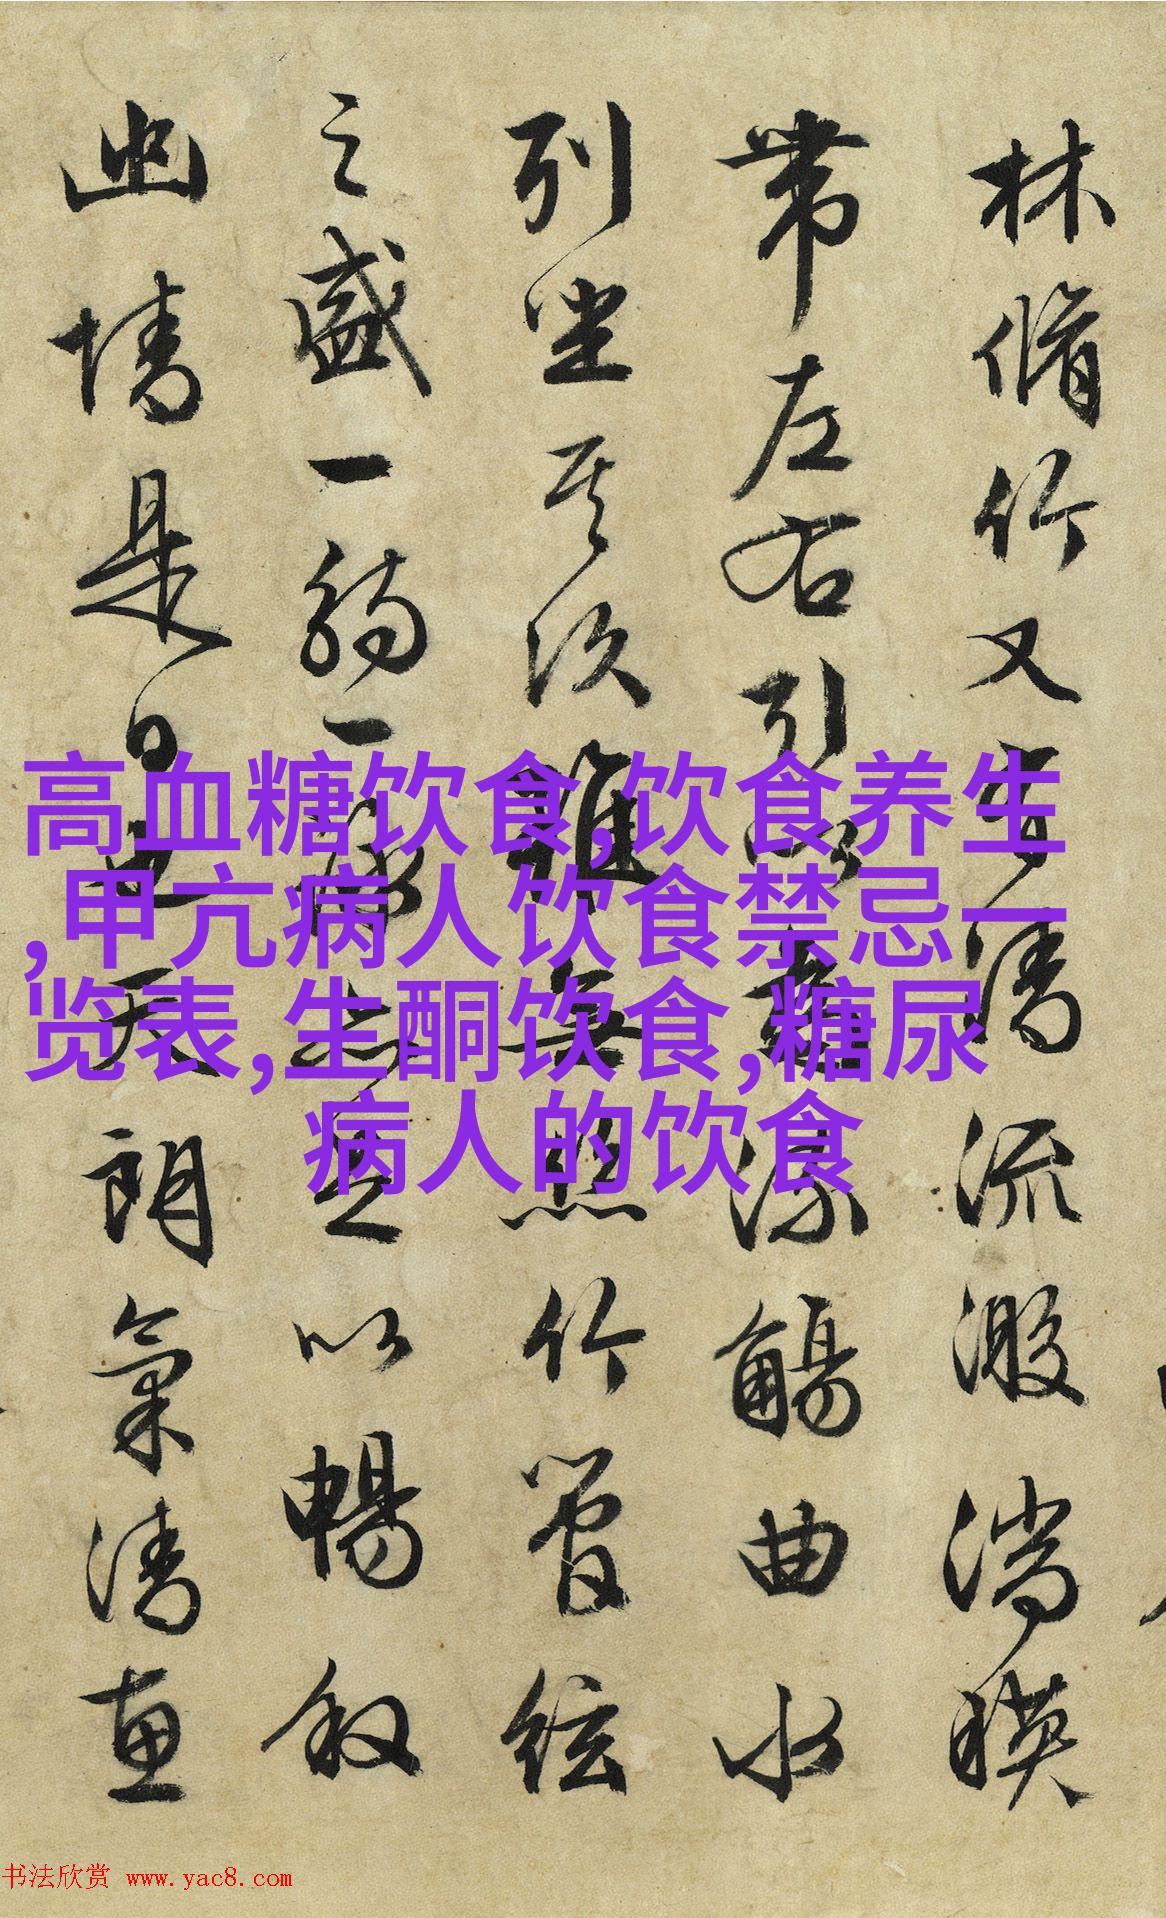 林脩竹又有清流激湍暎
帶左右引以爲流觴曲水
列坐其次雖無絲竹管絃
之盛一觴一詠亦足以暢敘
幽情是日也天朗氣清惠
高血糖饮食,饮食养生
,甲亢病人饮食禁忌一
览表,生酮饮食,糖尿
病人的饮食
书法欣赏 www.yac8.com